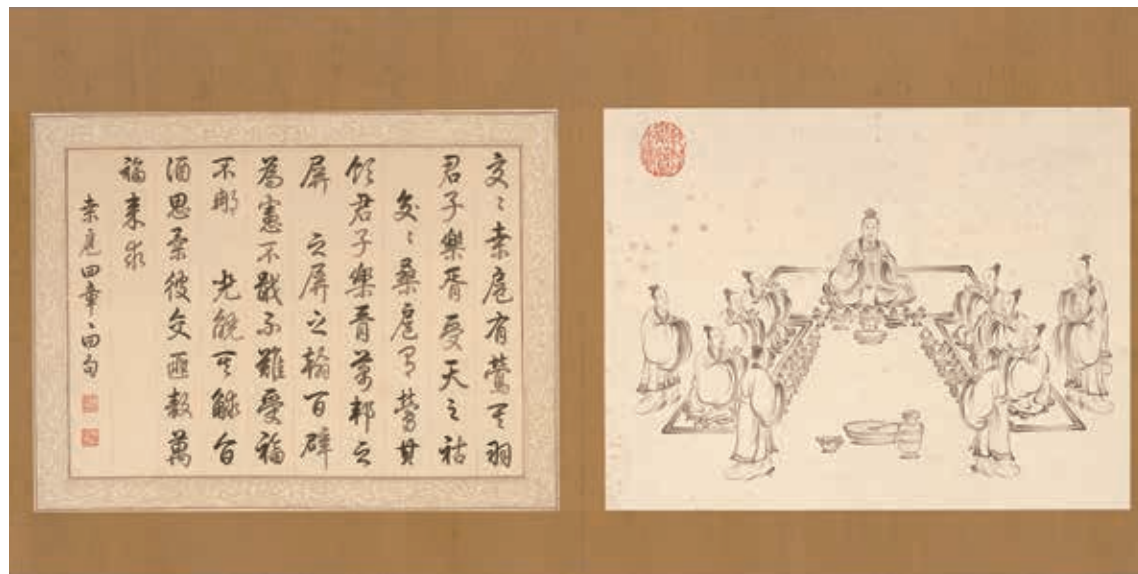 交〻桒扈有鶯其羽
君子樂胥受天之祜
交〻桑扈有鶯其
領君子樂胥萬邦之
屏 之屏之翰百辟
為憲不戢不難受福
不那 兕觥其觩旨
酒思柔彼交匪敖萬
福来求
桒扈四章〻四句